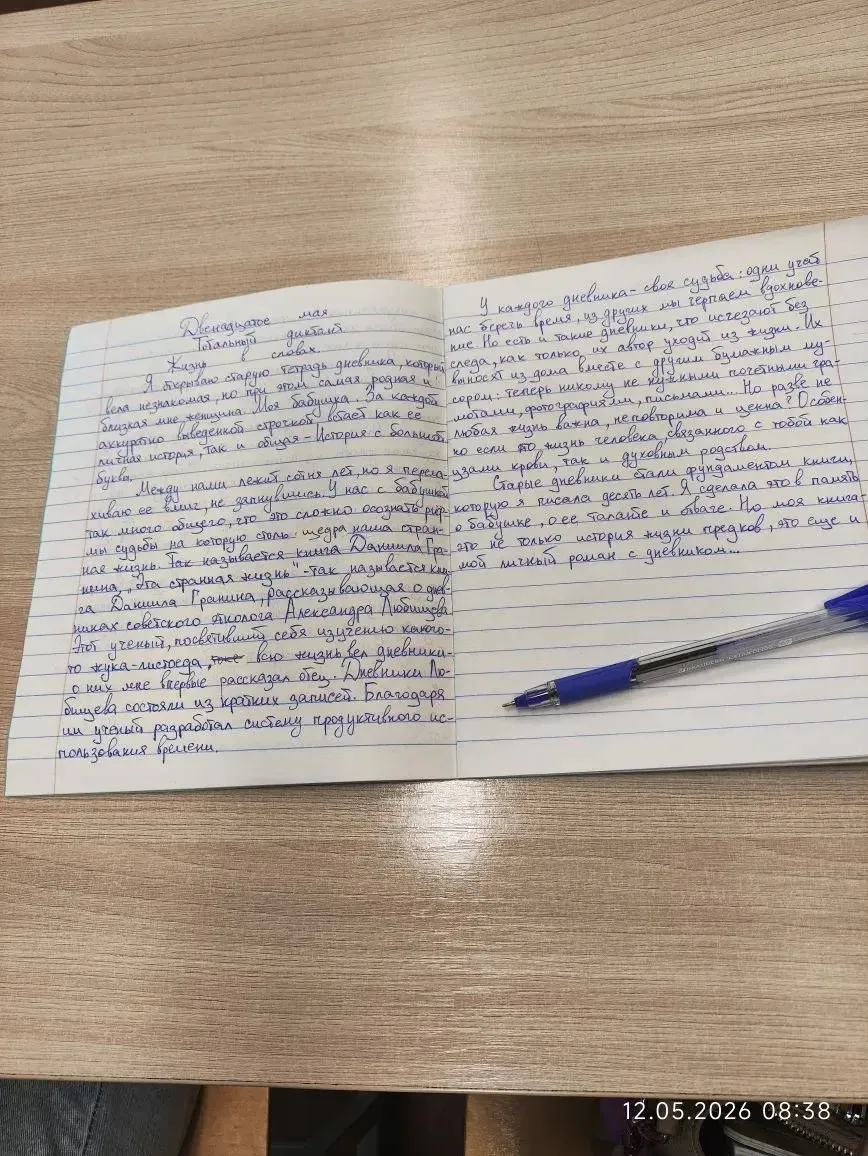 Двенадцатое мая
Тотальный диктант
Жизнь в словах.
Я открываю старую тетрадь дневника, который
вела незнакомая, но при этом самая родная и
близкая мне женщина. Моя бабушка. За каждой
аккуратно выведенной строчкой встает как ее
личная история, так и общая – История с большой
буквы.
Между нами лежит сотня лет, но я переска-
киваю ее вмиг, не запнувшись. У нас с бабушкой
так много общего, что это сложно осознать
мы судьбы на которую столь щедра наша стран-
ная жизнь. Так называется книга Даниила Гра-
нина, „Эта странная жизнь" - так называется кни-
га Даниила Гранина, рассказывающая о днев-
никах советского Александра Любищева.
Этот ученый, посвятивший себя изучению какого-
то жука-листоеда, всю жизнь вел дневники -
о них мне впервые рассказал отец. Дневники Лю-
бищева состояли из кратких записей. Благодаря
им ученый разработал систему продуктивного ис-
пользования времени.
У каждого дневника - своя судьба: одни учат
нас беречь время, из других мы черпаем вдохнове-
ние. Но есть и такие дневники, что исчезают без
следа, как только их автор уходит из жизни. Их
выносят из дома вместе с другим бумажным му-
сором: теперь никому не нужными почетными гра-
мотами, фотографиями, письмами... Но разве не
любая жизнь важна, неповторима и ценна? Особен-
но если это жизнь человека, связанного с тобой как
узами крови, так и духовным родством.
Старые дневники стали фундаментом книги,
которую я писала десять лет. Я сделала это в память
о бабушке, о ее таланте и отваге. Но моя книга
это не только история жизни предков, это еще и
мой личный роман с дневником...
12.05.2026 08:38